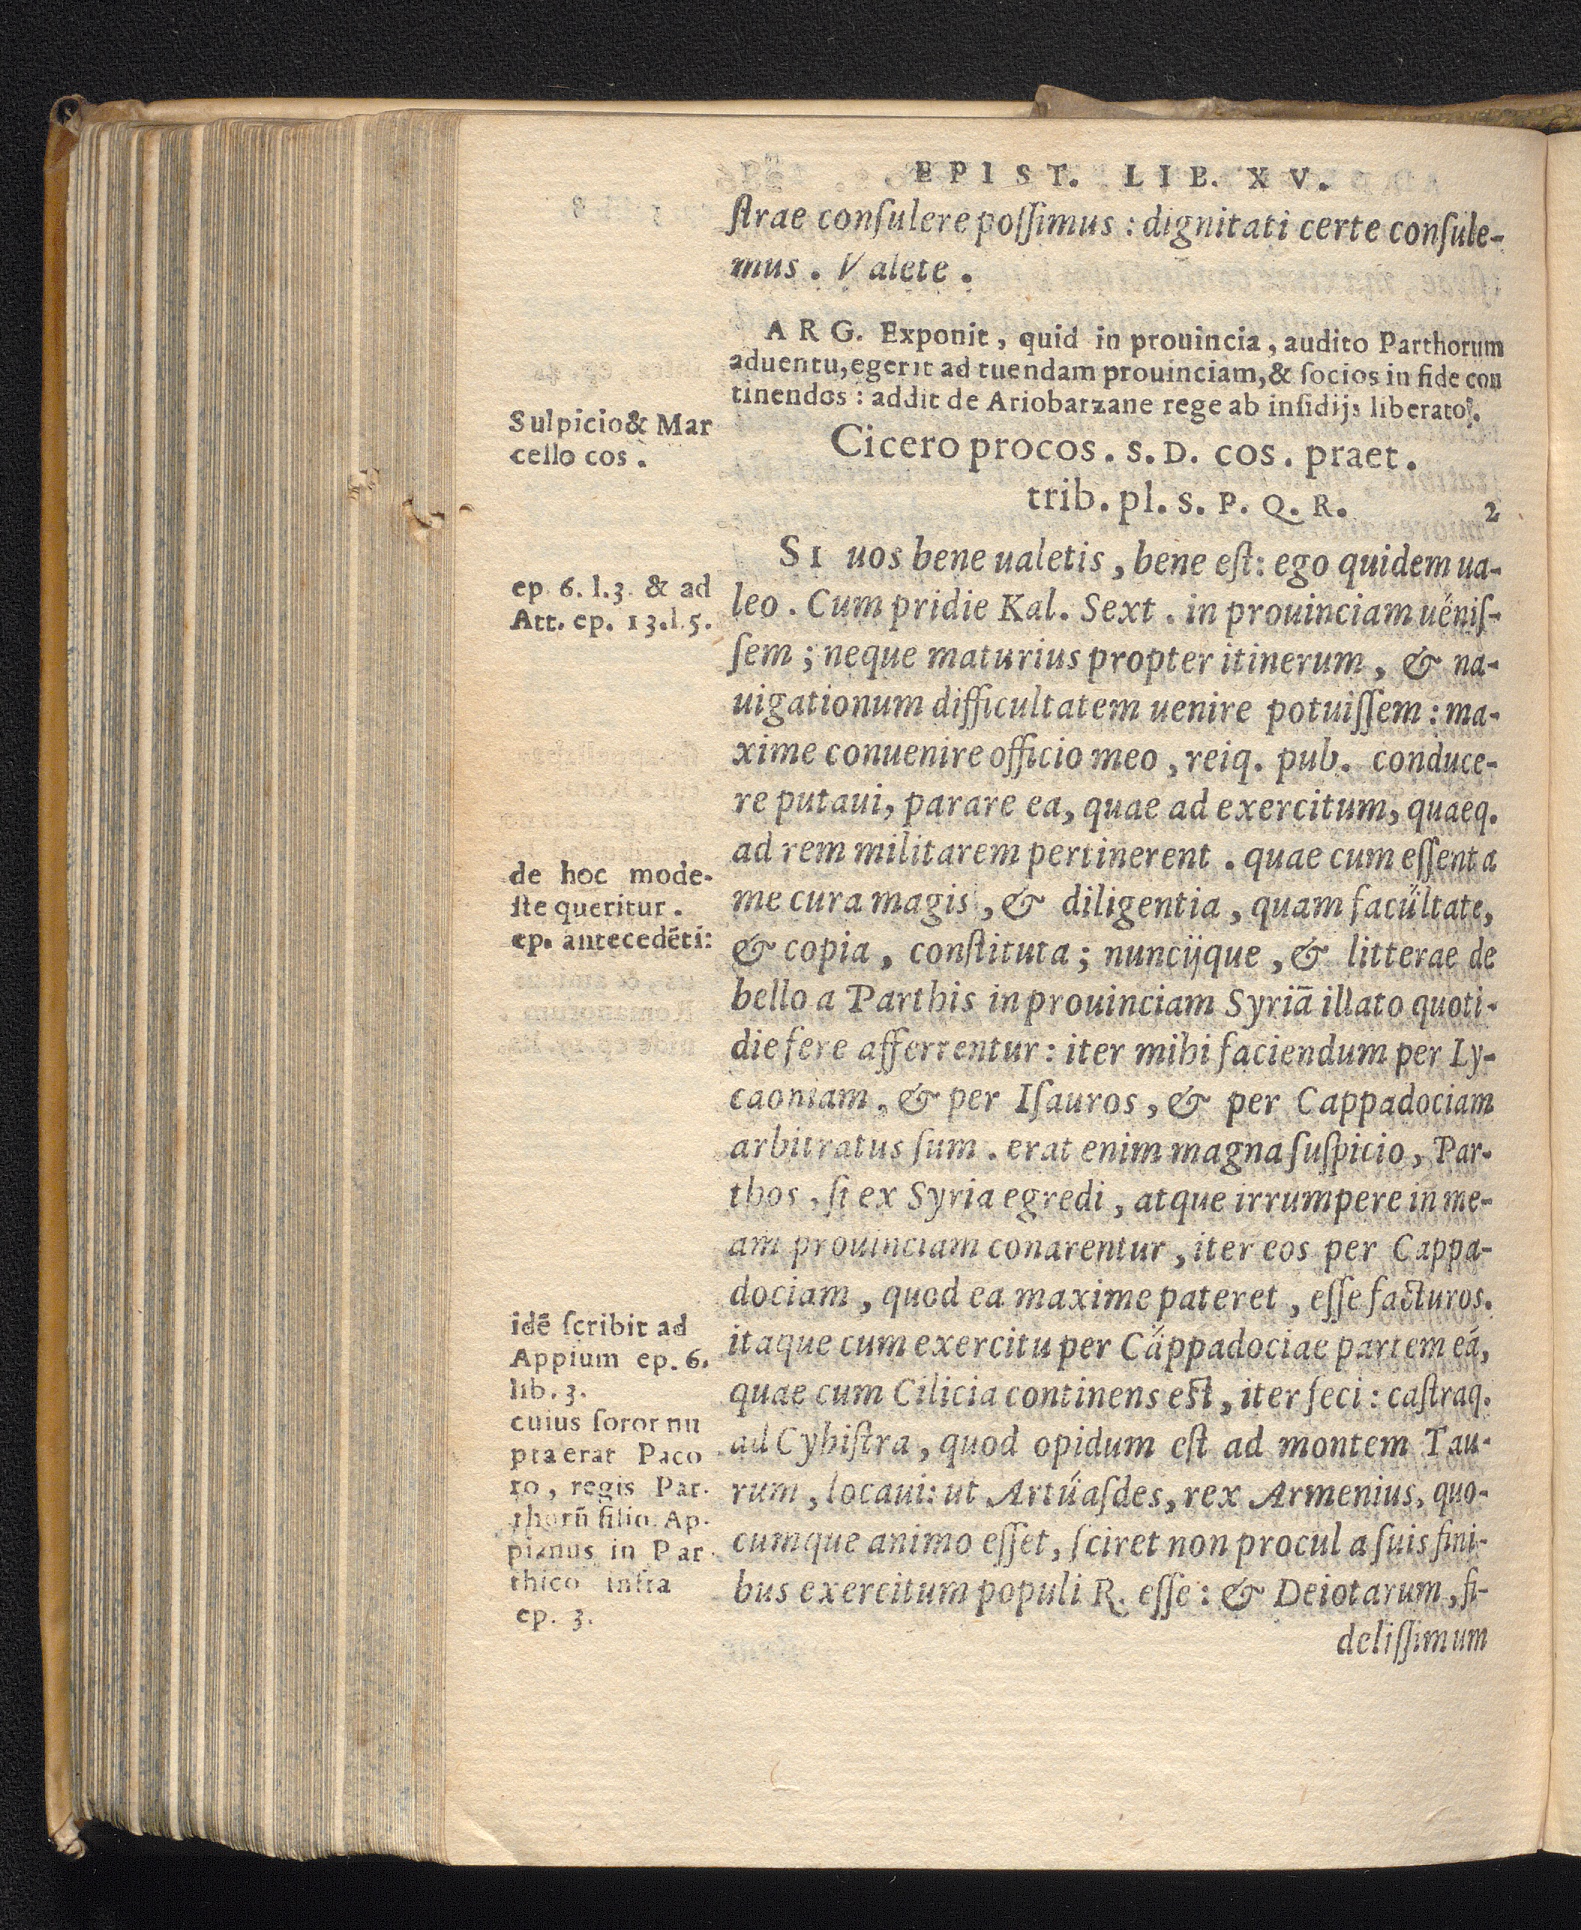 EPIST. LIB. XV.
strae consulere possimus : dignitati certe consule-
mus . Valete .
ARG. Exponit, quid in prouincia, audito Parthorum
aduentu, egerit ad tuendam prouinciam, & socios in fide con
tinendos : addit de Ariobarzane rege ab insidijs liberato.
Sulpicio & Mar
cello cos .
Cicero procos . S. D. cos . praet .
trib. pl. S. P. Q. R. 2
SI uos bene ualetis, bene est: ego quidem ua-
leo . Cum pridie Kal. Sext . in prouinciam uenis-
sem ; neque maturius propter itinerum, & na-
uigationum difficultatem uenire potuissem : ma-
xime conuenire officio meo, reiq. pub. conduce-
re putaui, parare ea, quae ad exercitum, quaeq.
ad rem militarem pertinerent . quae cum essent a
me cura magis, & diligentia, quam facultate,
& copia, constituta ; nuncijque, & litterae de
bello a Parthis in prouinciam Syriā illato quoti-
die fere afferrentur : iter mihi faciendum per Ly-
caoniam, & per Isauros, & per Cappadociam
arbitratus sum . erat enim magna suspicio, Par-
thos, si ex Syria egredi, atque irrumpere in me-
am prouinciam conarentur, iter eos per Cappa-
dociam, quod ea maxime pateret, esse facturos.
itaque cum exercitu per Cappadociae partem eā,
quae cum Cilicia continens est, iter feci : castraq.
ad Cybistra, quod opidum est ad montem Tau-
rum, locaui: ut Artuasdes, rex Armenius, quo-
cumque animo esset, sciret non procul a suis fini-
bus exercitum populi R. esse : & Deiotarum, fi-
delissimum
ep. 6. l. 3. & ad
Att. ep. 13. l. 5.
de hoc mode-
ste queritur .
ep. antecedēti:
idē scribit ad
Appium ep. 6.
lib. 3.
cuius soror nu
pta erat Paco
ro, regis Par-
thorū filio. Ap-
pianus in Par
thico infra
ep. 3.